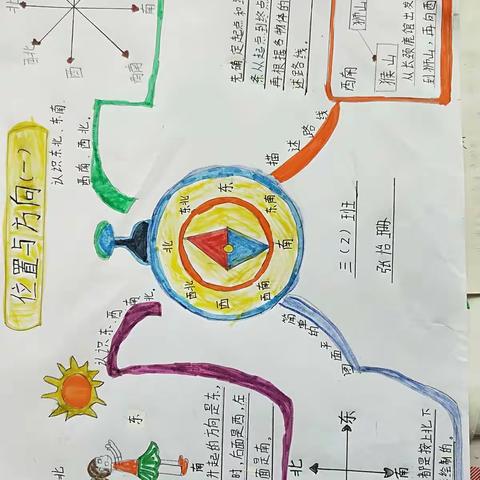 位置与方向(一)
北
南
西北
西
西南
认识东北、东南、
西南、西北。
先确定起点和终
条从起点到终点
再根据多物体的
述路线。
描述路线
狮山
猴山
西南
从长颈鹿馆出发
到狮山，再向西
东
东北
东南
北
南
西北
西
西南
三(2)班
张怡珊
认识东、西、南、北。
北
东
南
升起的方向是东，
时，后面是西，左
面是南。
简单的平面图
北
东
南
都是按上北下
绘制的。